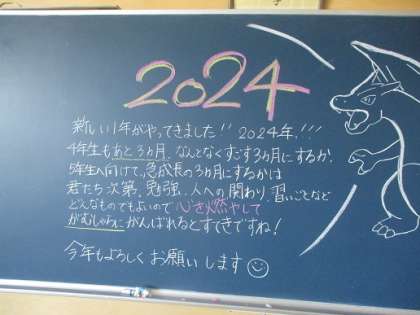 2024
新しい1年がやってきました!! 2024年!!!
4年生もあと3ヵ月。なんとなくすごす3ヵ月にするか、
5年生へ向けて、急成長の3ヵ月にするかは
君たち次第。勉強、人への関わり、習いごとなど
どんなものでもよいので心を燃やして
がむしゃらにがんばれるとすてきですね!
今年もよろしくお願いします